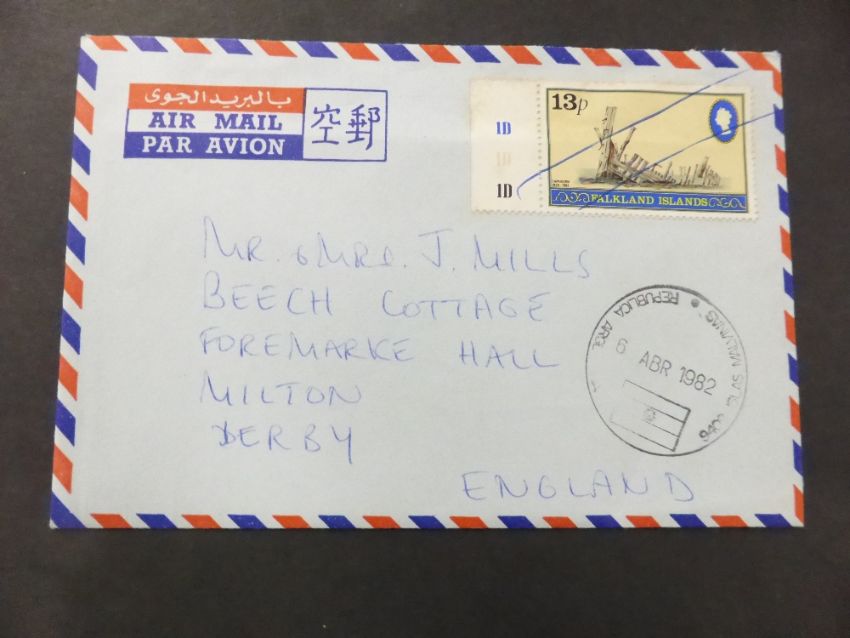 بالبريد الجوى
AIR MAIL
PAR AVION
空郵
13p
1D
1D
1D
FALKLAND ISLANDS
MR. & MRS. J. MILLS
BEECH COTTAGE
FOREMARKE HALL
MILTON
DERBY
ENGLAND
REPUBLICA ARG.
MALVINAS
6 ABR 1982